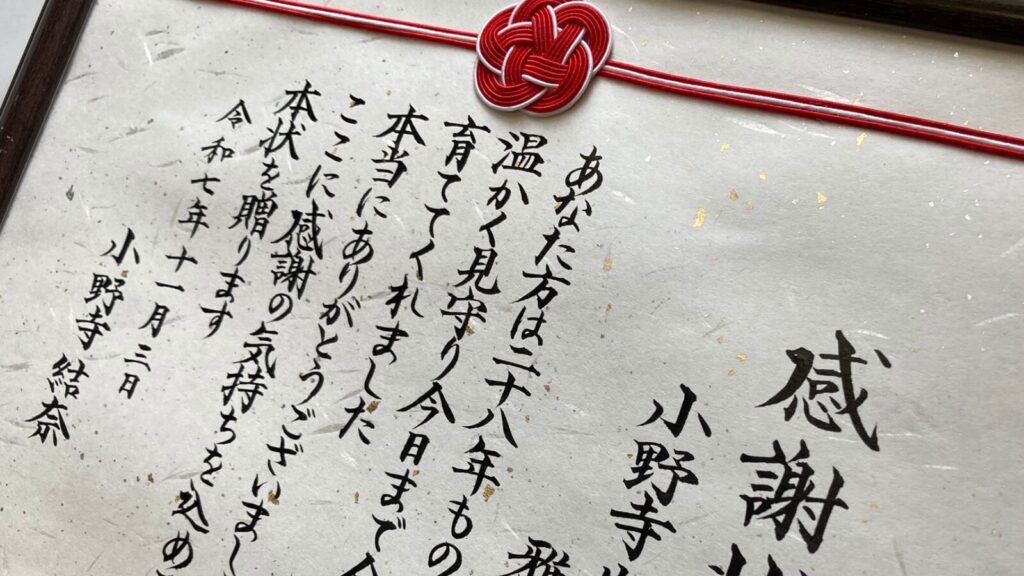 感謝
小野寺
あなた方は二十八年もの
温かく見守り今日まで
育ててくれました
本当にありがとうございまし
ここに感謝の気持ちを込め
本状を贈ります
令和七年十一月三日
小野寺結奈